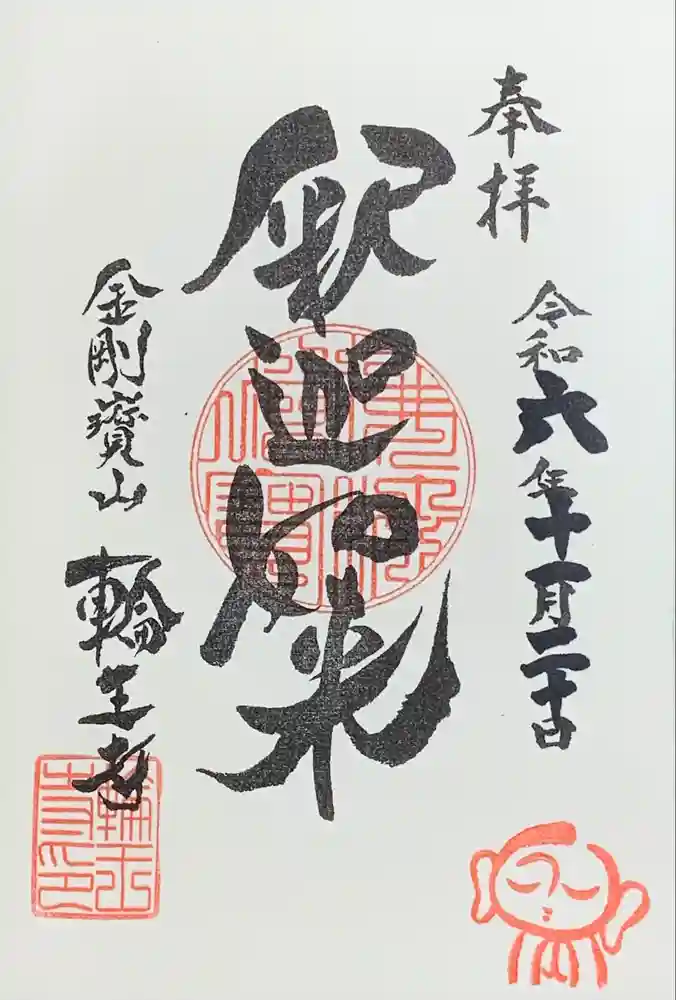 奉拝
令和六年十一月二十日
釈迦如来
金剛寶山
輪王寺
輪王寺印